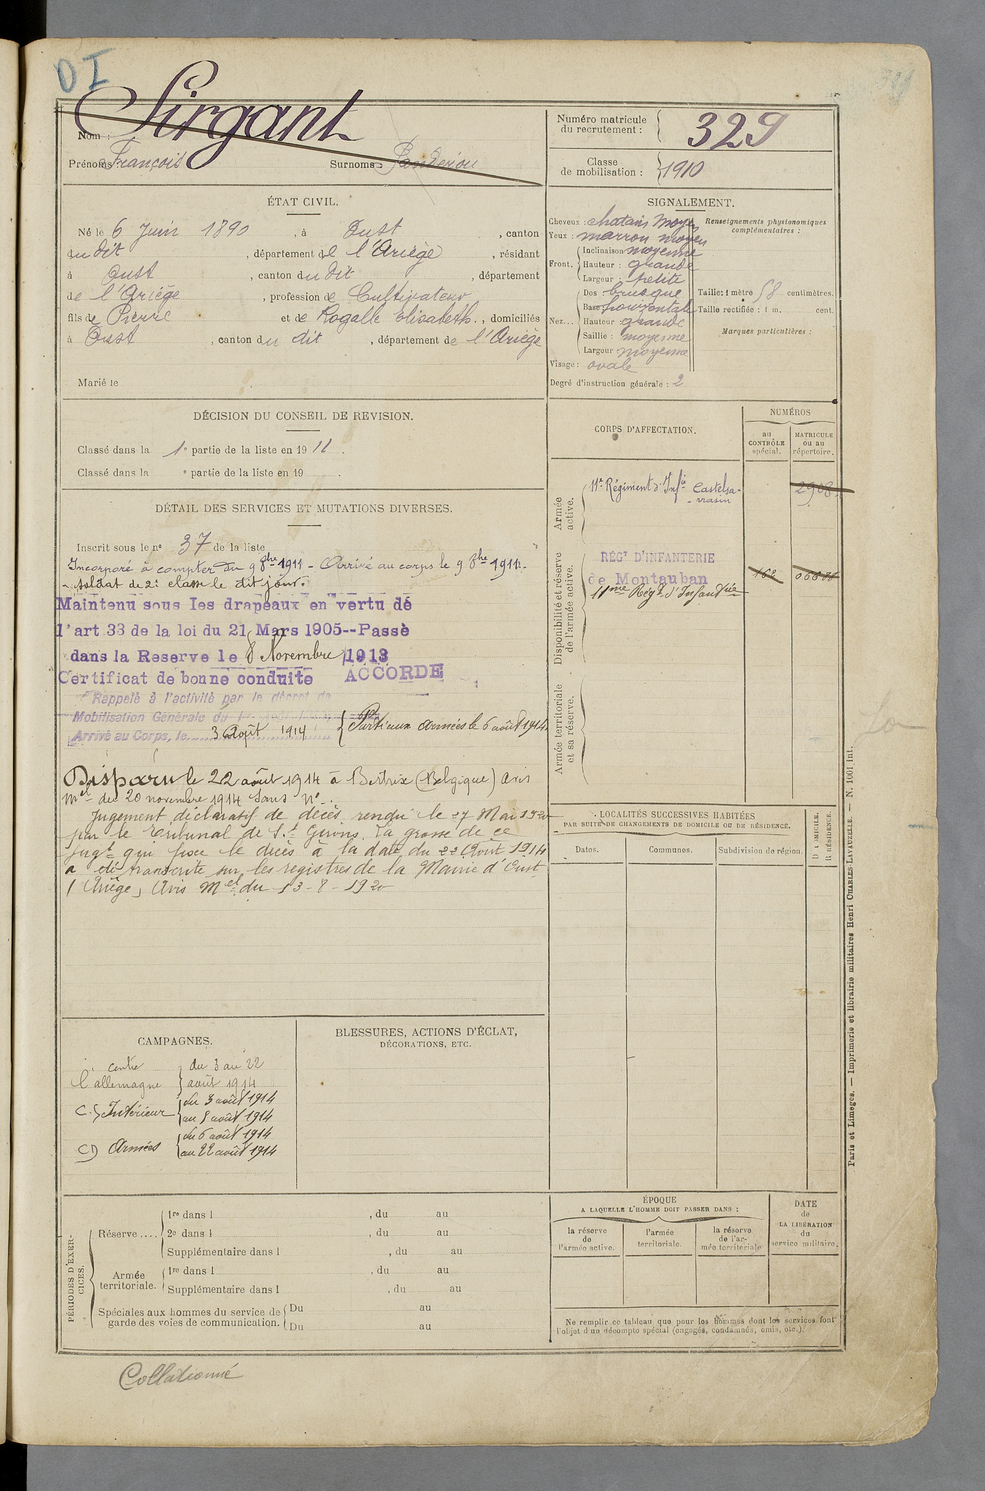 DI
Sirgant
Nom :
Prénoms : François Surnoms :
Numéro matricule du recrutement : 329
Classe de mobilisation : 1910
ÉTAT CIVIL.
Né le 6 Juin 1890, à Oust, canton
du dit, département de l'Ariège, résidant
à Oust, canton du dit, département
de l'Ariège, profession de Cultivateur
fils de Pierre et de Rogalle Elisabeth, domiciliés
à Oust, canton du dit, département de l'Ariège
Marié le
SIGNALEMENT.
Cheveux : chatain moyen
Yeux : marron moyen
Front. Inclinaison moyenne
Hauteur : grande
Largeur : petite
Nez... Dos busqué
Base horizontale
Hauteur grande
Saillie : moyenne
Largeur moyenne
Visage : ovale
Degré d'instruction générale : 2
Renseignements physionomiques
complémentaires :
Taille : 1 mètre 58 centimètres.
Taille rectifiée : 1 m. cent.
Marques particulières :
DÉCISION DU CONSEIL DE REVISION.
Classé dans la 1e partie de la liste en 1911.
Classé dans la e partie de la liste en 19
DÉTAIL DES SERVICES ET MUTATIONS DIVERSES.
Inscrit sous le no 37 de la liste
Incorporé à compter du 9 8bre 1911 - Arrivé au corps le 9 8bre 1911.
Soldat de 2e classe le dit jour.
Maintenu sous les drapeaux en vertu de
l'art 33 de la loi du 21 Mars 1905--Passé
dans la Reserve le 8 Novembre 1913
Certificat de bonne conduite ACCORDE
Rappelé à l'activité par le décret de
Mobilisation Générale du
Arrivé au Corps, le 3 Août 1914
Parti aux armées le 6 août 1914.
Disparu le 22 août 1914 à Bertrix (Belgique) avis
Mel du 20 novembre 1914 Sans No.
Jugement déclaratif de décès rendu le 27 Mai 1920
par le Tribunal de St Girons. La grosse de ce
jugt qui fixe le décès à la date du 22 Août 1914
a été transcrite sur les registres de la Mairie d'Oust
(Ariège) Avis Mel du 13-8-1920
CORPS D'AFFECTATION.
NUMÉROS
au CONTRÔLE spécial.
MATRICULE ou au répertoire.
Armée active.
11e Régiment d'Infie Castelsarrasin
2908
Disponibilité et réserve de l'armée active.
RÉGt D'INFANTERIE
de Montauban
11me Régt d'Infanterie
Armée territoriale et sa réserve.
LOCALITÉS SUCCESSIVES HABITÉES
PAR SUITE DE CHANGEMENTS DE DOMICILE OU DE RÉSIDENCE.
Dates. Communes. Subdivision de région.
D. DOMICILE.
R. RÉSIDENCE.
CAMPAGNES.
contre l'allemagne du 3 au 22 août 1914
C. Intérieur du 3 août 1914
au 5 août 1914
CD Armées du 6 août 1914
au 22 août 1914
BLESSURES, ACTIONS D'ÉCLAT,
DÉCORATIONS, ETC.
PÉRIODES D'EXERCICES.
Réserve .... 1re dans l , du au
2e dans l , du au
Supplémentaire dans l , du au
Armée territoriale. 1re dans l , du au
Supplémentaire dans l , du au
Spéciales aux hommes du service de garde des voies de communication. Du au
Du au
ÉPOQUE
A LAQUELLE L'HOMME DOIT PASSER DANS :
la réserve de l'armée active.
l'armée territoriale.
la réserve de l'armée territoriale
DATE de LA LIBÉRATION du service militaire.
Ne remplir ce tableau que pour les hommes dont les services font
l'objet d'un décompte spécial (engagés, condamnés, omis, etc.).
Paris et Limoges. — Imprimerie et librairie militaires Henri CHARLES-LAVAUZELLE. — N. 1001 int.
Collationné